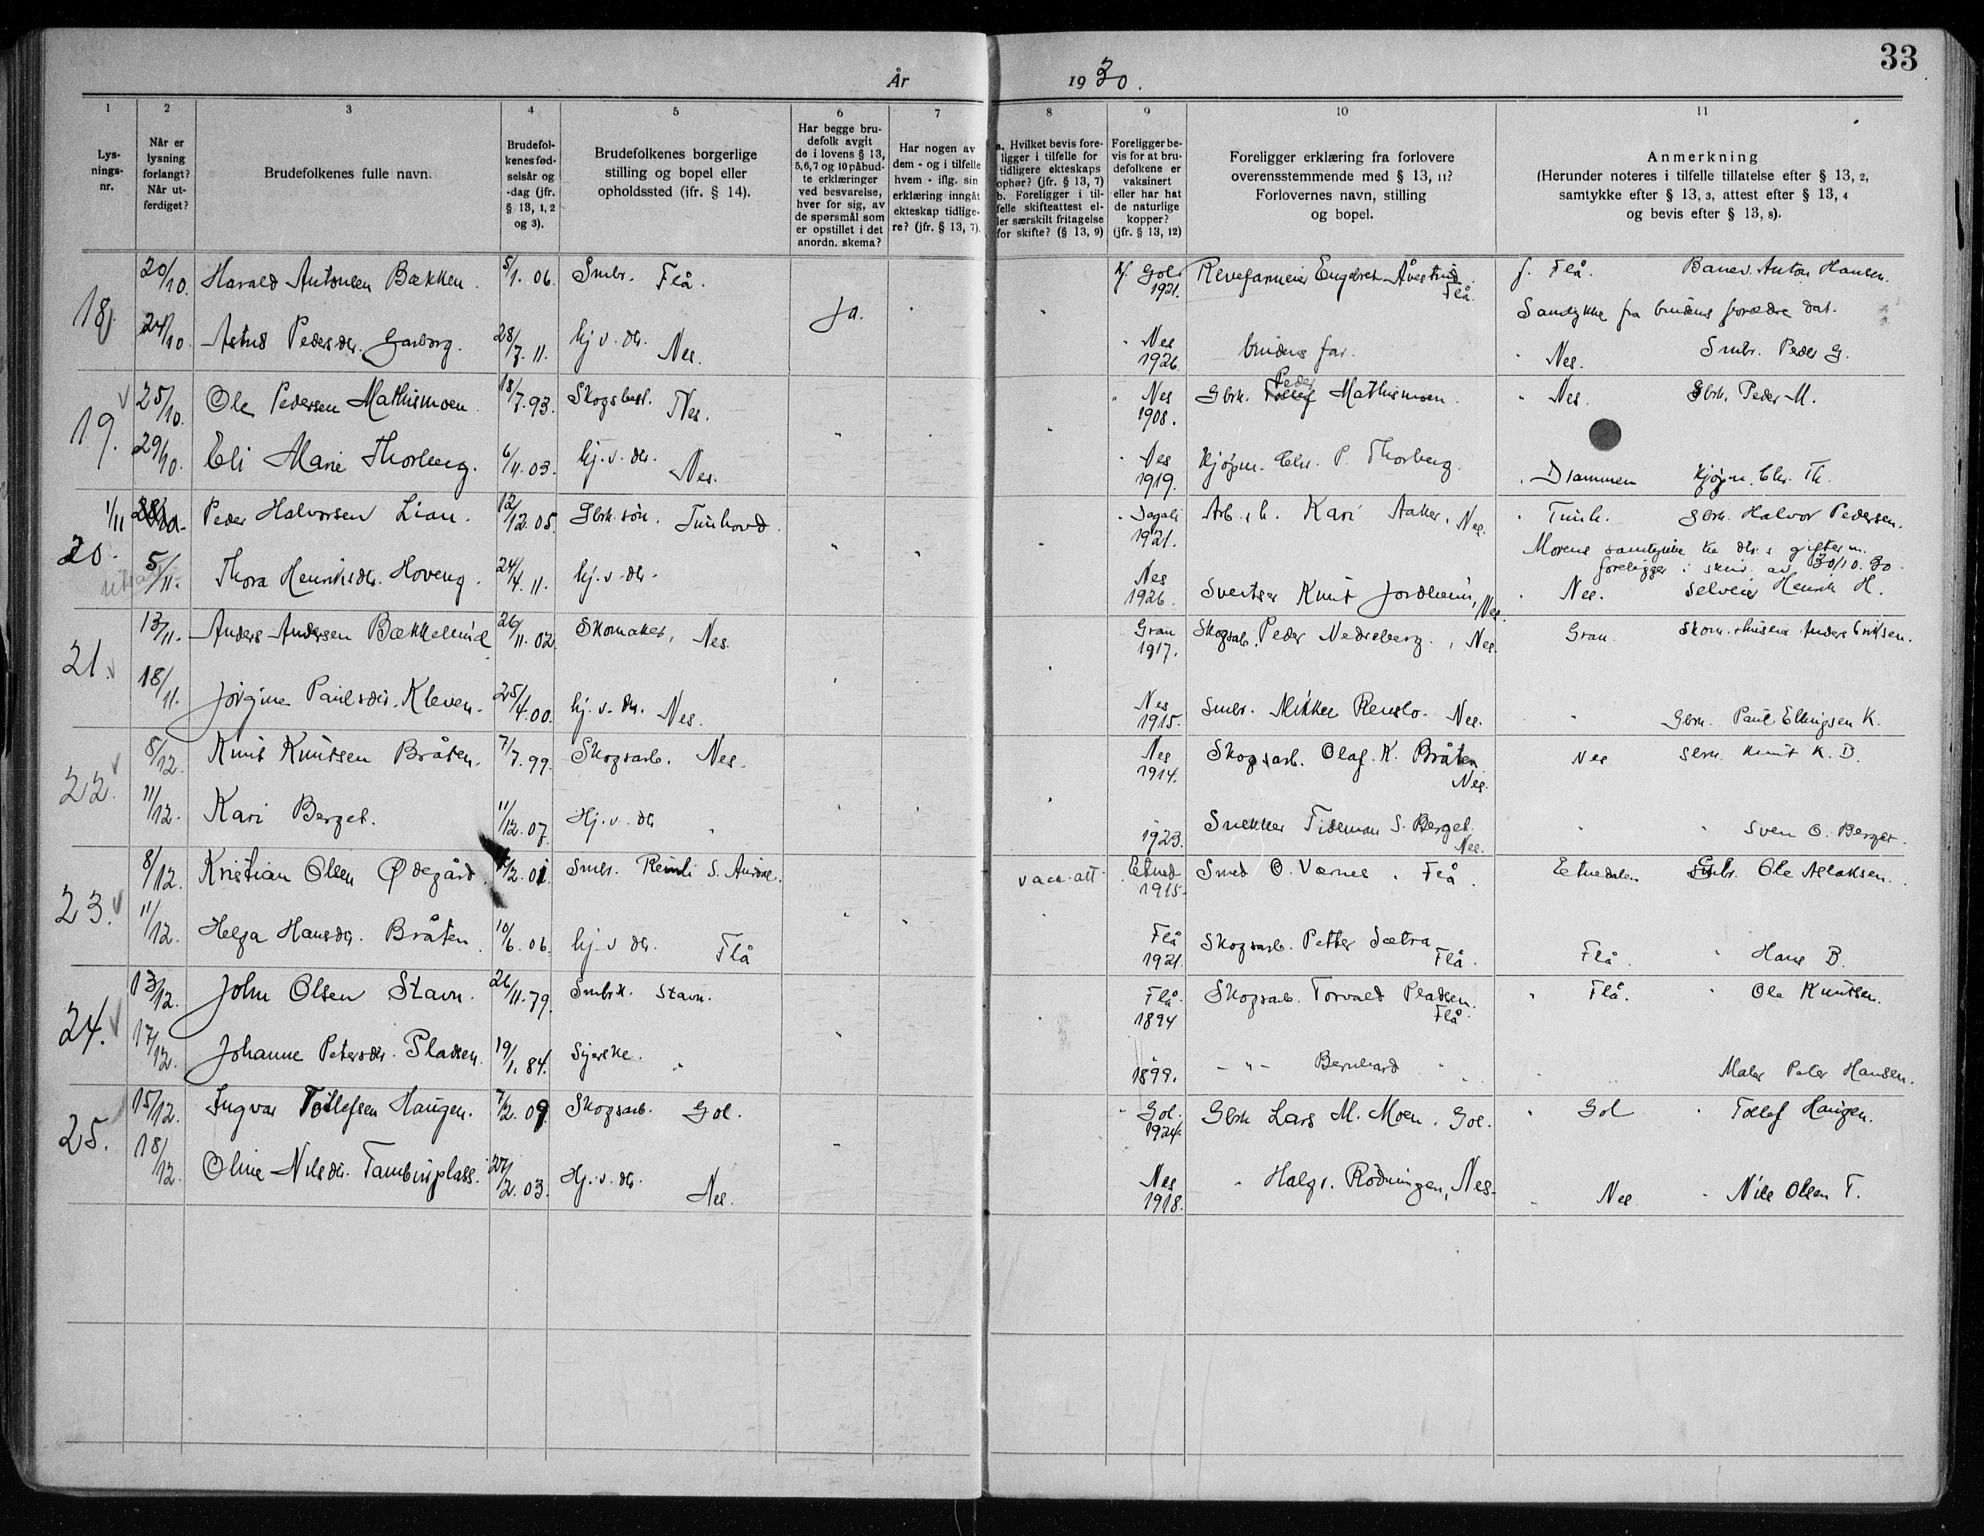 33
År 1930.
1 2 3 4 5 6 7 8 9 10 11
Lys-
nings-
nr.
Når er
lysning
forlangt?
Når ut-
ferdiget?
Brudefolkenes fulle navn.
Brudefol-
kenes fød-
selsår og
-dag (jfr.
§ 13, 1, 2
og 3).
Brudefolkenes borgerlige
stilling og bopel eller
opholdssted (ifr. § 14).
Har begge bru-
defolk avgit
de i lovens § 13,
5,6,7 og 10 påbud-
te erklæringer
ved besvarelse,
hver for sig, av
de spørsmål som
er opstillet i det
anordn. skema?
Har nogen av
dem - og i tilfelle
hvem - iflg. sin
erklæring inngåt
ekteskap tidlige-
re? (jfr. § 13, 7).
a. Hvilket bevis fore-
ligger i tilfelle for
tidligere ekteskaps
ophør? (jfr. § 13, 7)
b. Foreligger i til-
felle skifteattest el-
ler særskilt fritagelse
for skifte? (§ 13, 9)
Foreligger be-
vis for at bru-
defolkene er
vaksinert
eller har hat
de naturlige
kopper?
(jfr. § 13, 12)
Foreligger erklæring fra forlovere
overensstemmende med § 13, 11?
Forlovernes navn, stilling
og bopel.
Anmerkning
(Herunder noteres i tilfelle tillatelse efter § 13, 2,
samtykke efter § 13, 3, attest efter § 13, 4
og bevis efter § 13, 8).
18. 20/10. Harald Antonsen Bækken. 5/1. 06. Smbr. Flå. Ja. Gol 1921. Revefarmeier Engebret Flå. f. Flå. Banev. Anton Hansen.
Samtykke fra brudens forældre dat.
24/10 Astrid Pedersdr. Garborg. 28/7. 11. hj. v. dr. Nes. " Nes 1926. brudens far. " Nes. Smbr. Peder G.
19. 25/10. Ole Pedersen Mathismoen. 18/7. 93. Skogsbest. Nes. " Nes 1908. Gbrk. Peder Mathismoen. " Nes. Gbrk. Peder M.
29/10. Eli Marie Thorberg. 6/11. 03. hj. v. dr. Nes. " Nes 1919. Kjøpm. Chr. P. Thorberg. " Drammen Kjøpm. Chr. Th.
20. 1/11 Peder Halvorsen Lian. 12/12. 05. Gbrk. søn. Tunhovd. " Dagali 1921. Arb. Kari Aaker, Nes. " Tunh. Gbrk. Halvor Pedersen.
Morens samtykke til drs giftem.
foreligger i skriv. av 30/10. 30.
5/11. Thora Henriksdr. Hoveng. 24/4. 11. hj. v. dr. Nes 1926. Sveitser Knut Jordheim, Nes. " Nes. selveier Henrik H.
21. 13/11. Anders Andersen Bækkelund 26/11. 02. Skomaker, Nes. Gran 1917. Skogsarb. Peder Nedreberg, Nes. Gran. Skom. Anders Eriksen.
18/11. Jørgine Paulsdr. Kleven. 25/4. 00. hj. v. dr. Nes. Nes 1915. Smbr. Mikkel Renslo. Nes. " Gbrk. Paul Ellingsen K.
22. 8/12. Knut Knutsen Bråten. 7/7. 99. Skogsarb. Nes. Nes 1914. Skogsarb. Olaf K. Bråten Nes. Nes Gbrk. Knut K. B.
11/12. Kari Berget. 11/12. 07. Hj. v. dr " " 1923. Snekker Tideman S. Berget. Nes. " " Sven O. Berget.
23. 8/12. Kristian Olsen Ødegård. /2. 01. Smbr. Reinli S. Aurdal. vacc. att. Etned 1915. Smed O. Værnes. Flå. Etnedalen Smbr. Ole Aslaksen.
11/12. Helga Hansdr. Bråten. 10/6. 06. hj. v. dr. Flå Flå 1921. Skogsarb. Petter Sætra Flå. Flå. " Hans B.
24. 13/12. John Olsen Stavn. 26/11. 79. Smbrk. Stavn. Flå. 1894 Skogsarb. Torvald Pladsen. Flå. " Flå. " Ole Knutsen.
17/12. Johanne Petersdr. Pladsen. 19/1. 84. Syerske. " 1899. " Bernhard " " Maler Peter Hansen.
25. 15/12. Ingvar Tollefsen Haugen. 7/2. 09. Skogsarb. Gol. " Gol. 1924. Gbrk Lars M. Moen. Gol. " Gol " Tollef Haugen.
18/12. Oline Nilsdr. Tamburplass. 27/2. 03. Hj. v. dr. Nes. Nes 1918. " Halgr. Rödningen, Nes. " Nes " Nils Olsen T.